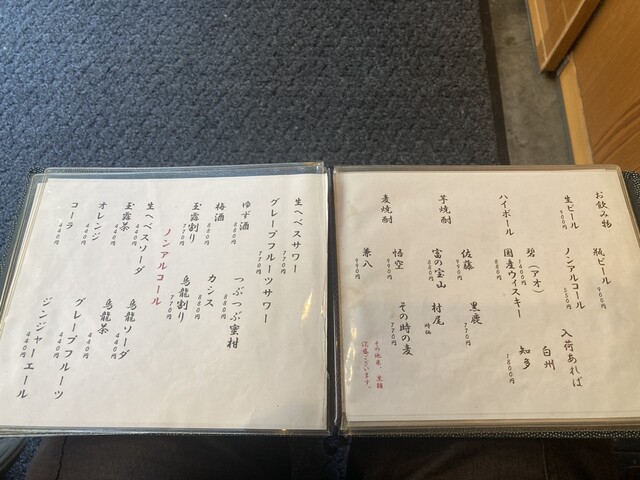 お飲み物
生ビール 900円
瓶ビール 900円
ノンアルコール 550円
入荷あれば
白州
ハイボール
碧（アオ） 1400円
国産ウィスキー 880円
知多 1800円
芋焼酎
佐藤 990円
黒鹿 770円
富の宝山 880円
村尾 時価
麦焼酎
悟空 990円
その時の麦 770円
兼八 990円
生へベスサワー 770円
グレープフルーツサワー 770円
ゆず酒 880円
つぶつぶ蜜柑 880円
梅酒 880円
カシス 880円
玉露割り 770円
烏龍割り 770円
ノンアルコール
生へベスソーダ 440円
烏龍ソーダ 440円
玉露茶 440円
烏龍茶 440円
オレンジ 440円
グレープフルーツ 440円
コーラ 440円
ジンジャーエール 440円